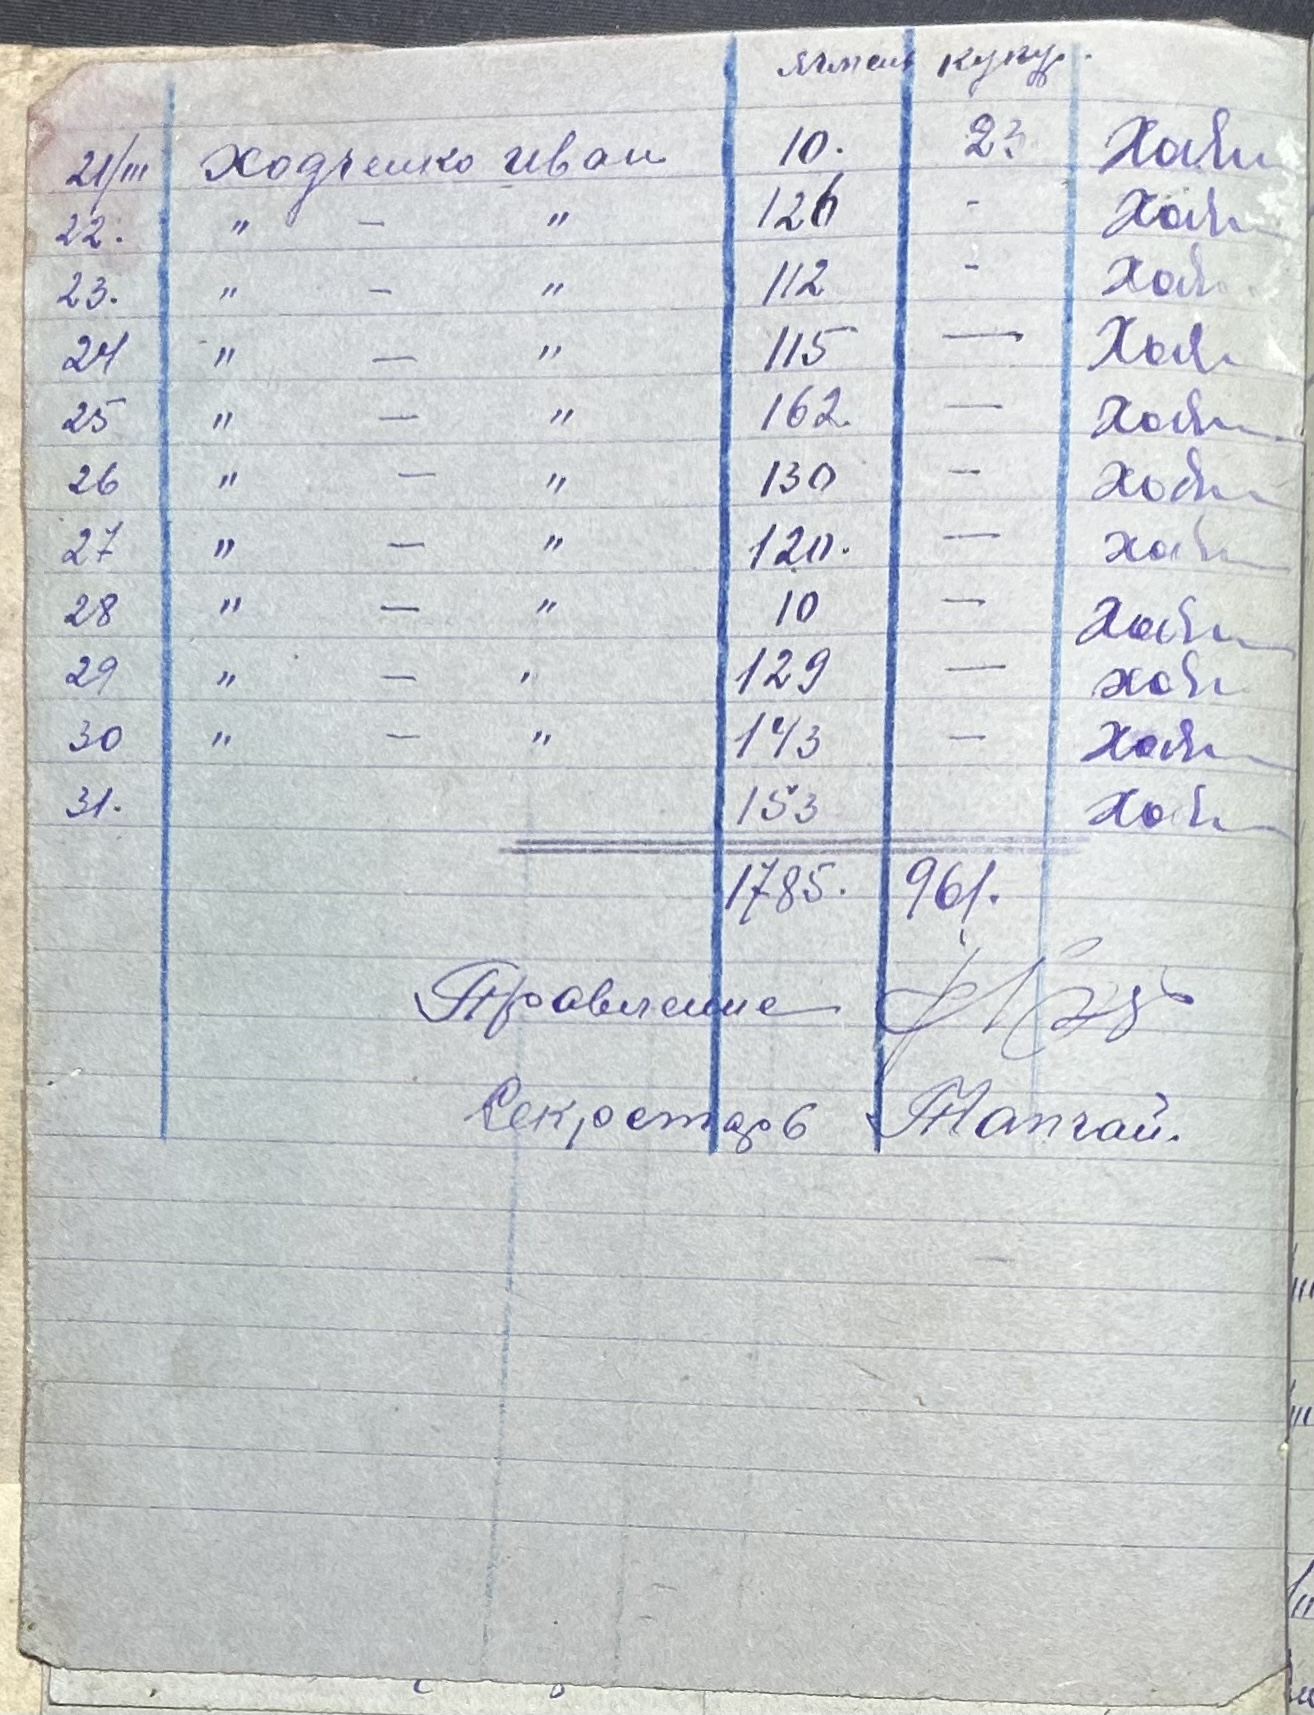 ячмень кукур.
21/III Ходченко Иван 10. 23
22. " — " 126 - Ход
23. " — " 112 - Ход
24 " — " 115 — Ход
25 " — " 162. — Ход
26 " — " 130 — Ход
27 " — " 120. — Ход
28 " — " 10 — Ход
29 " — " 129 — Ход
30 " — " 143 — Ход
31. 153 Ход
1785. 961.
Правление
Секретарь Тапчай.